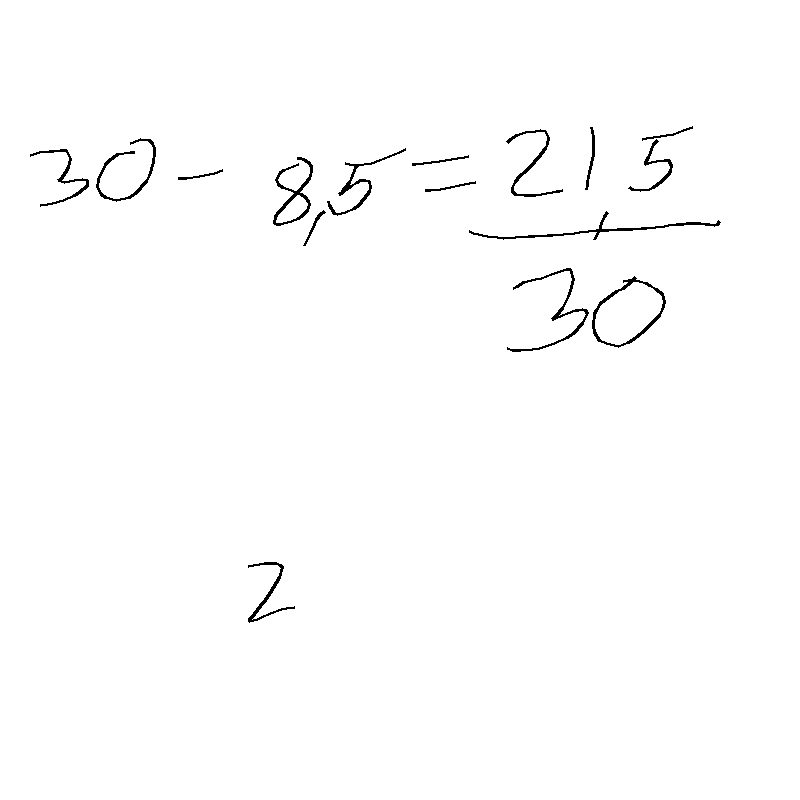 30 - 8,5 = 21,5
30
2